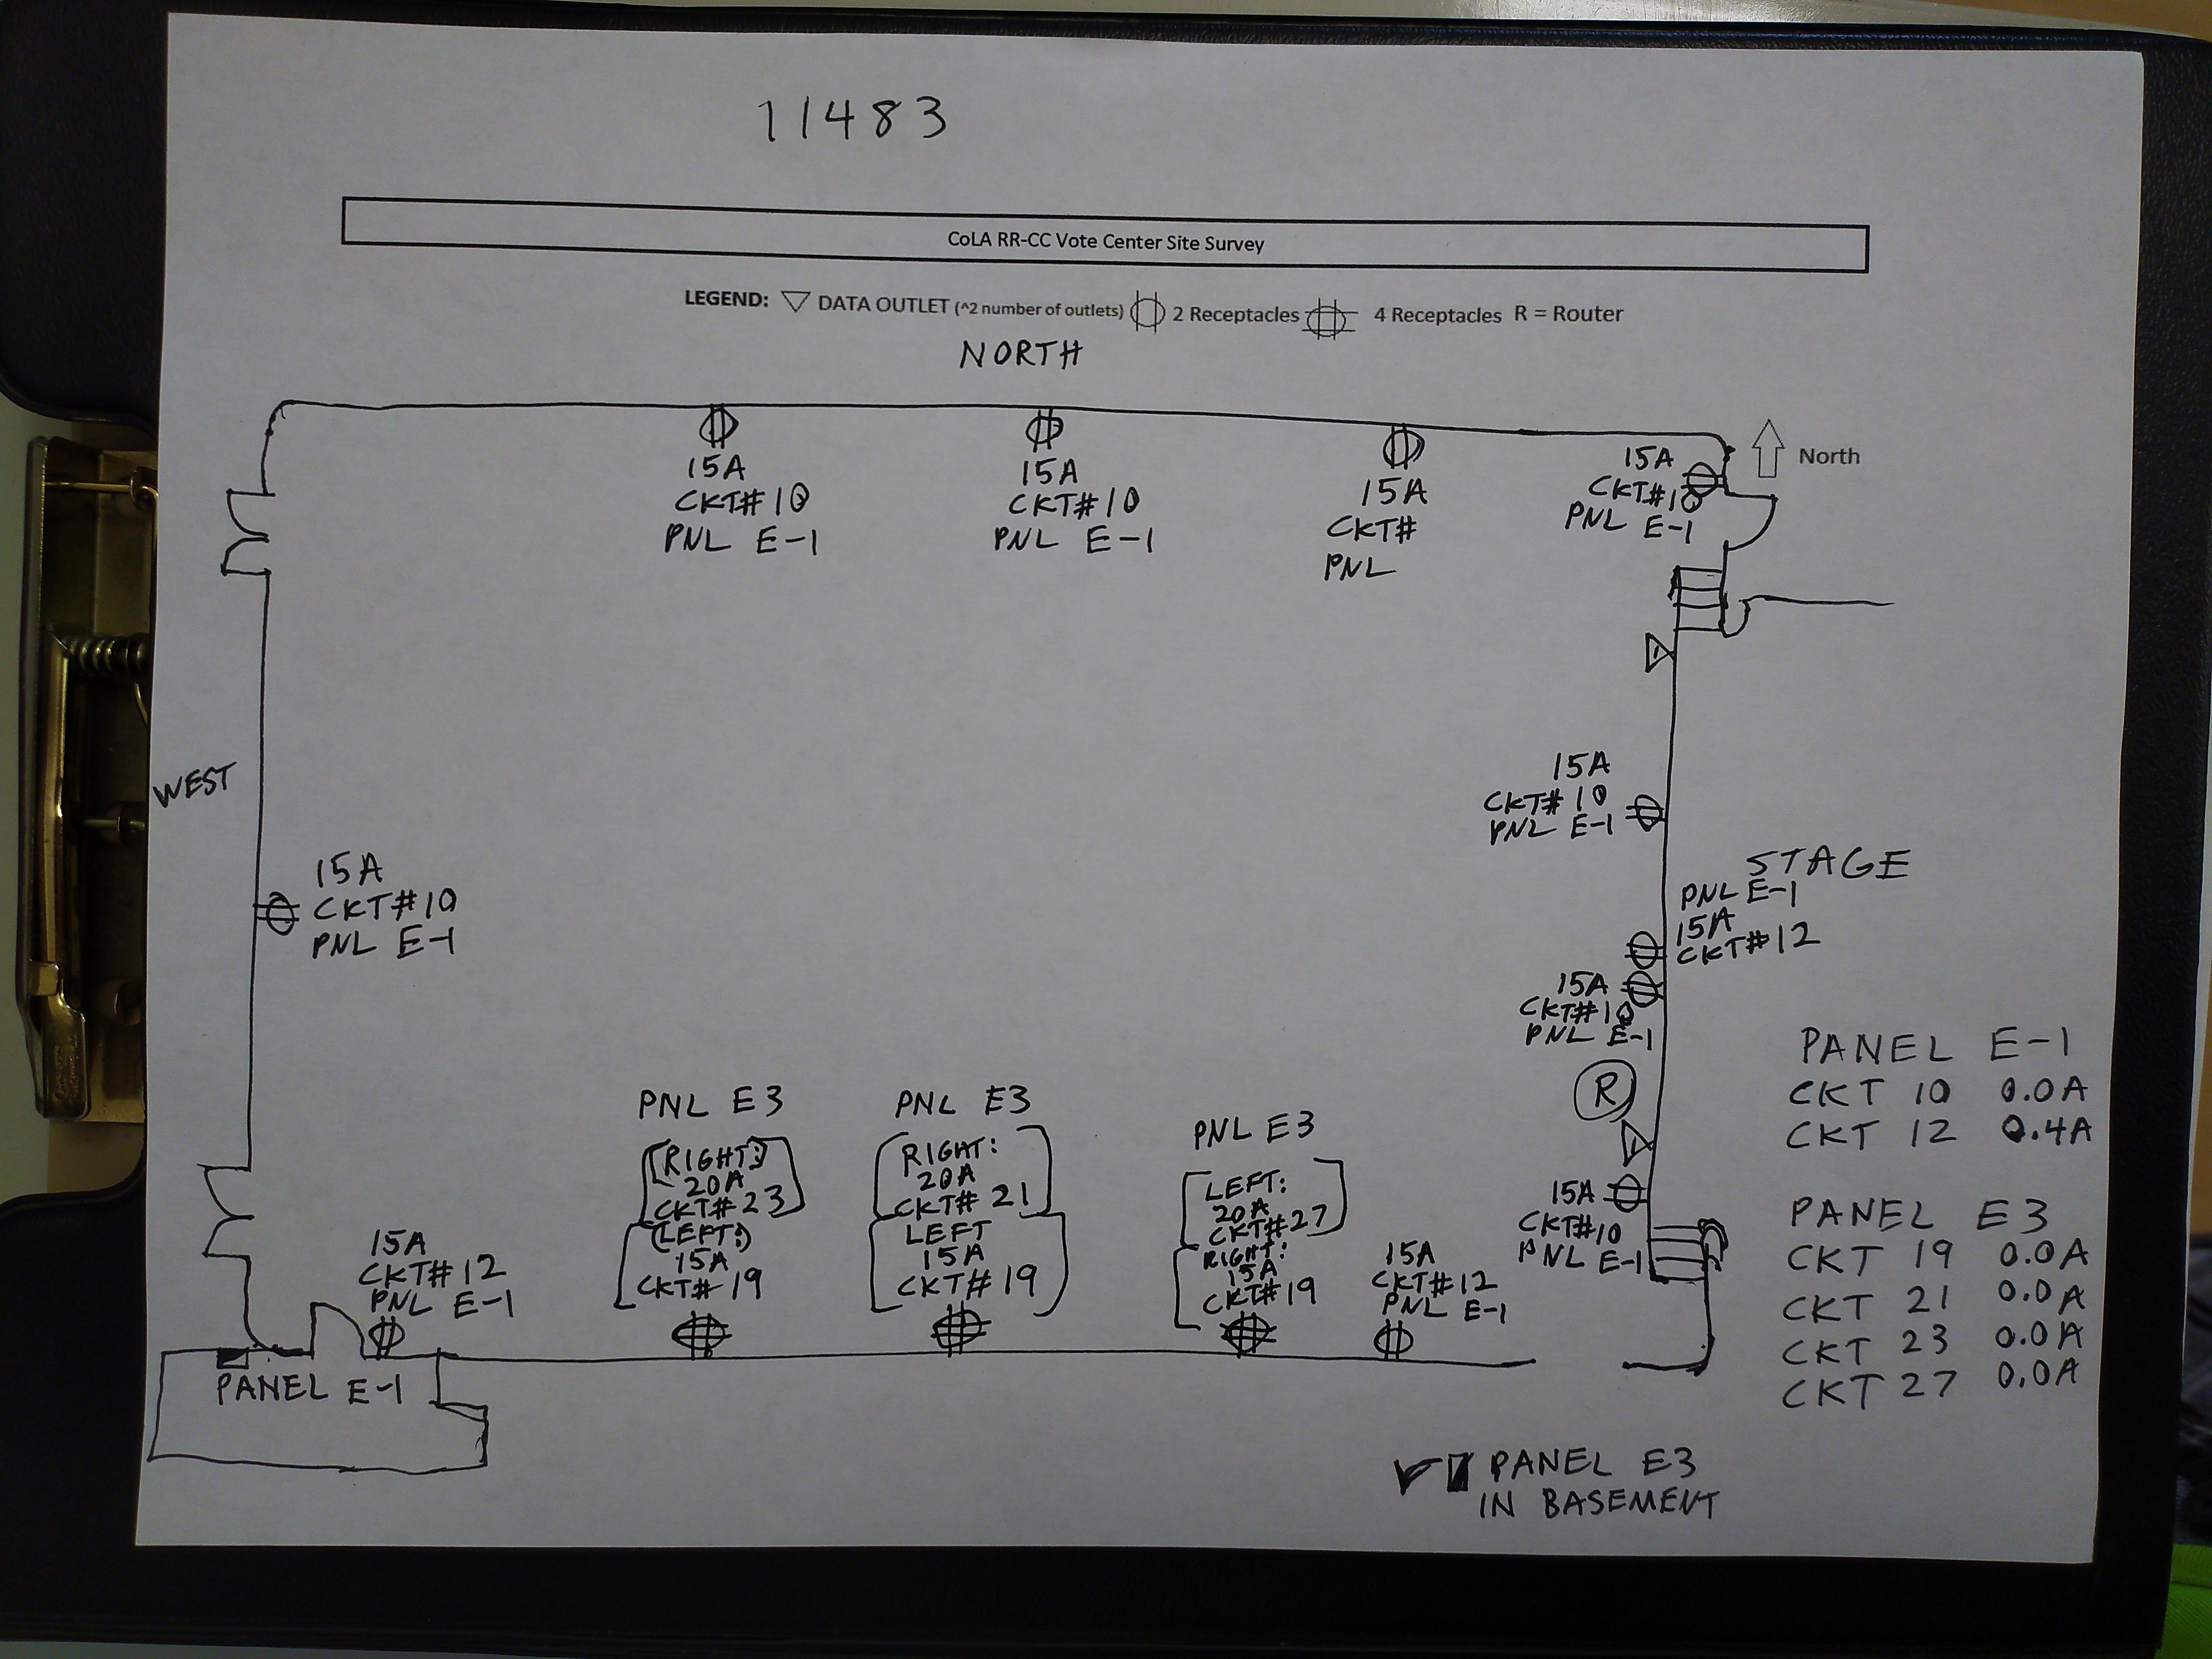 11483
CoLA RR-CC Vote Center Site Survey
LEGEND: DATA OUTLET (^2 number of outlets) 2 Receptacles 4 Receptacles R = Router
NORTH
North
15A
CKT# 10
PNL E-1
15A
CKT# 10
PNL E-1
15A
CKT#
PNL
15A
CKT# 10
PNL E-1
1
WEST
15A
CKT# 10
PNL E-1
STAGE
PNL E-1
15A
CKT# 12
15A
CKT # 10
PNL E-1
15A
CKT# 10
PNL E-1
R
1
15A
CKT#10
PNL E-1
PANEL E-1
CKT 10 0.0A
CKT 12 0.4A
PANEL E3
CKT 19 0.0A
CKT 21 0.0A
CKT 23 0.0A
CKT 27 0.0A
PNL E3
(RIGHT:)
20A
CKT# 23
(LEFT:)
15A
CKT# 19
PNL E3
RIGHT:
20A
CKT# 21
LEFT
15A
CKT# 19
PNL E3
LEFT:
20A
CKT#27
RIGHT:
15A
CKT#19
15A
CKT# 12
PNL E-1
15A
CKT# 12
PNL E-1
PANEL E-1
PANEL E3
IN BASEMENT